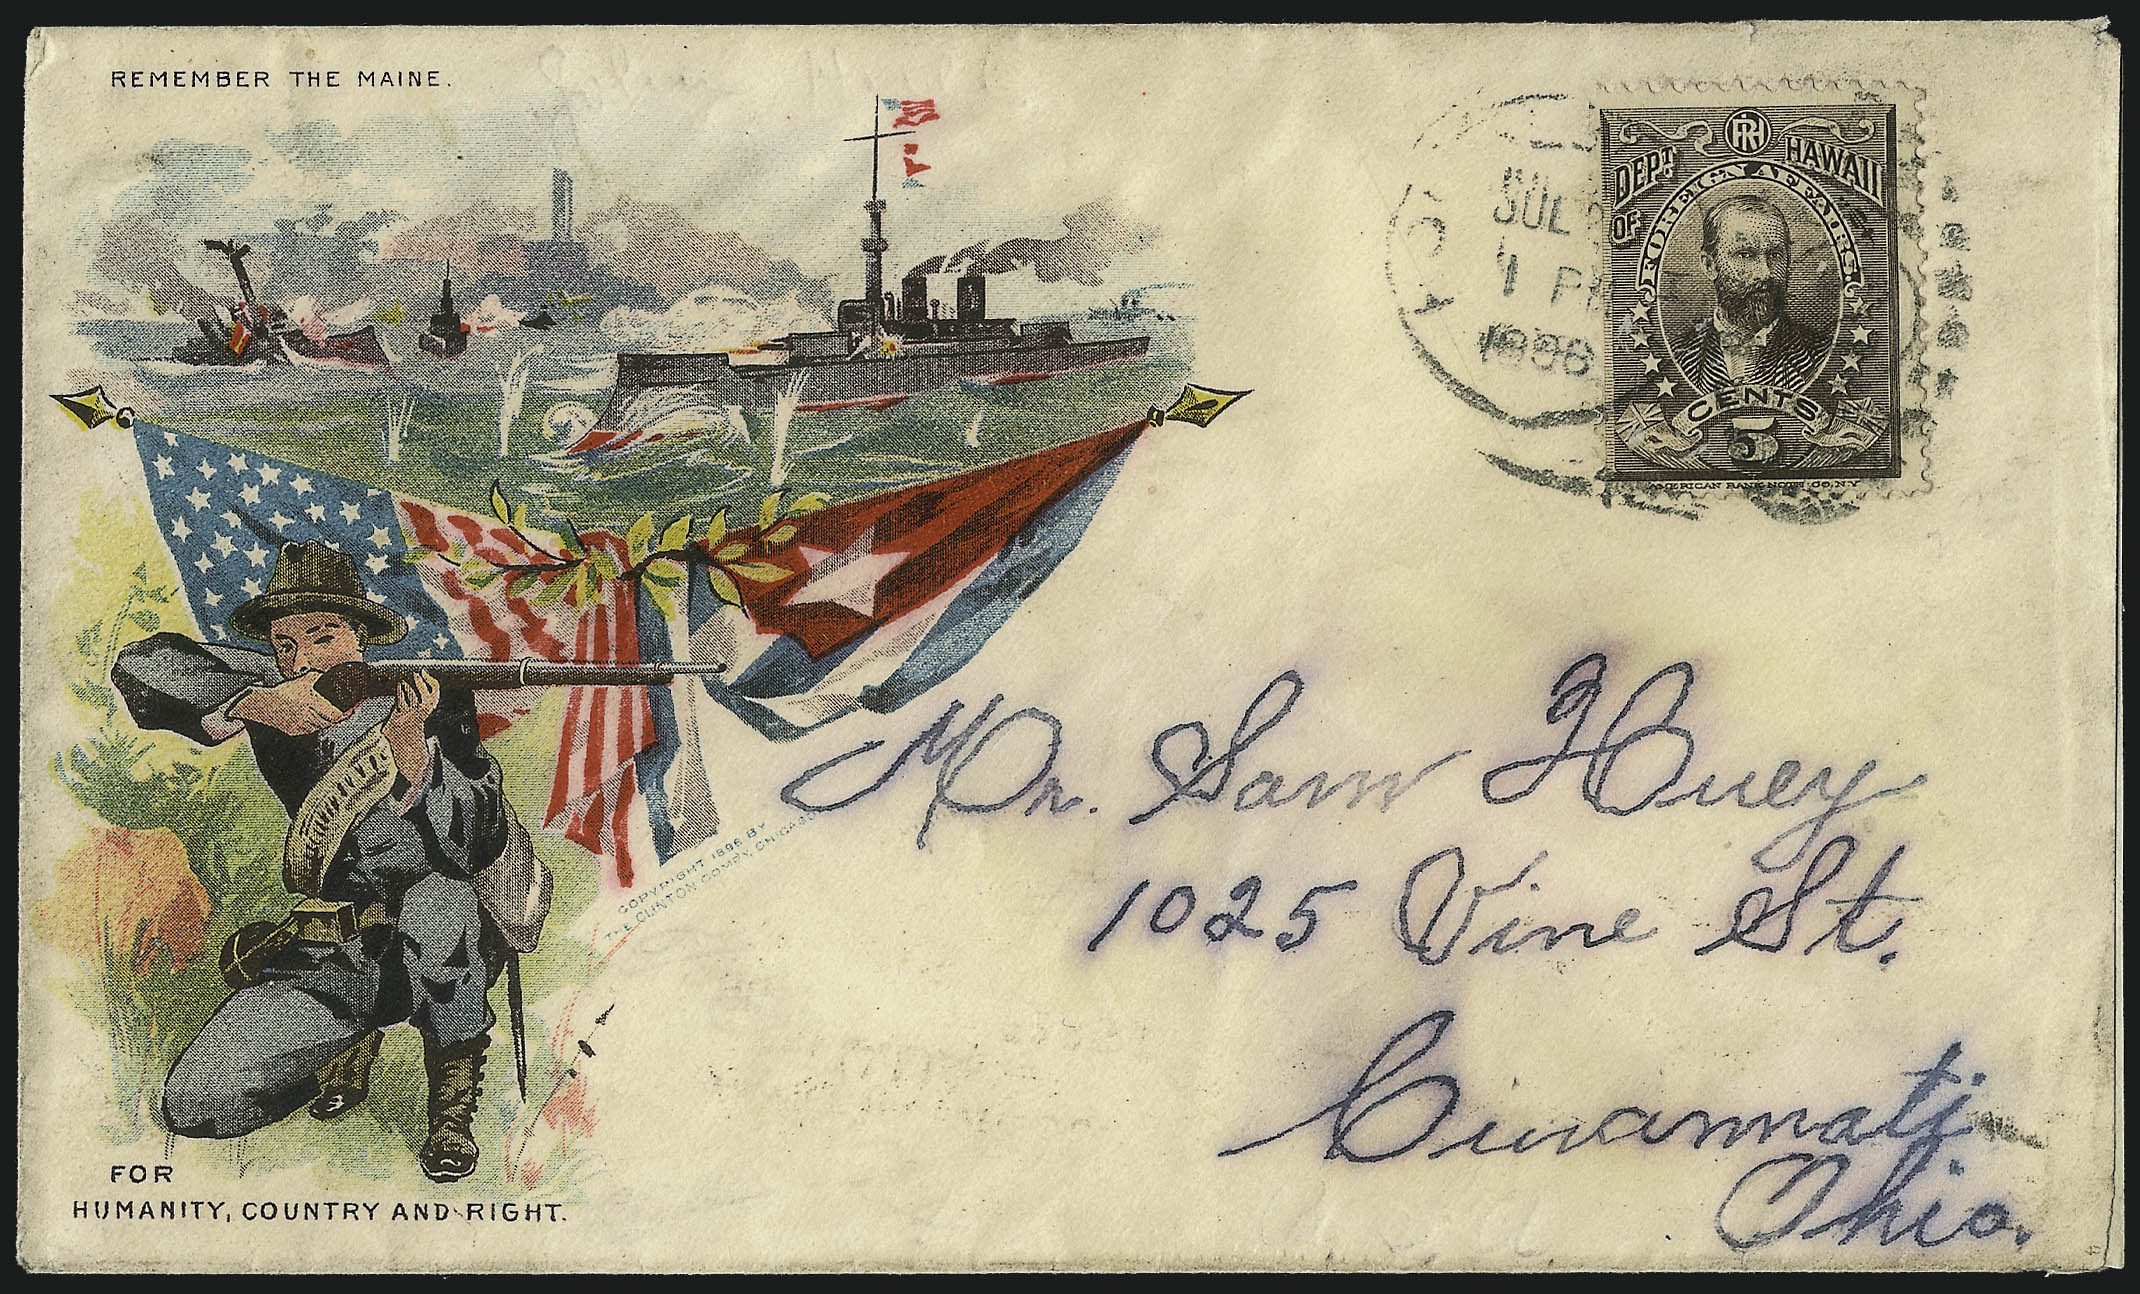 REMEMBER THE MAINE.
JUL
1 P
1898
RH
DEPT. OF FOREIGN AFFAIRS. HAWAII
CENTS
5
AMERICAN BANK NOTE CO. N.Y.
Mr. Sam Huey
1025 Vine St.
Cincinnati
Ohio.
COPYRIGHT 1898 BY
THE CLINTON COMPY, CHICAGO
FOR
HUMANITY, COUNTRY AND RIGHT.